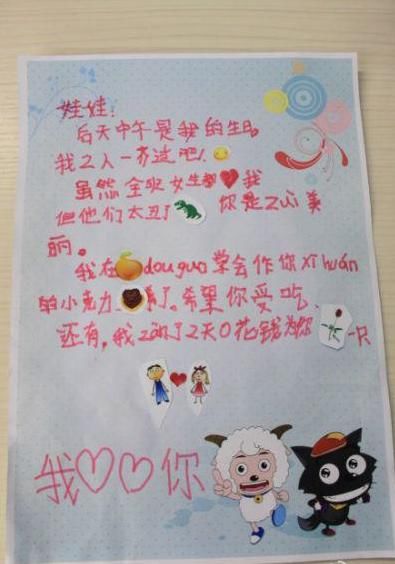 娃娃！
后天中午是我的生日。
我2人一齐过吧！
虽然全班女生都❤我
但他们太丑了 你是Zui美
丽。
我在douguo学会作你xǐhuán
的小克力了。希望你爱吃。
还有，我了2天0花钱为你一只
我♡♡你